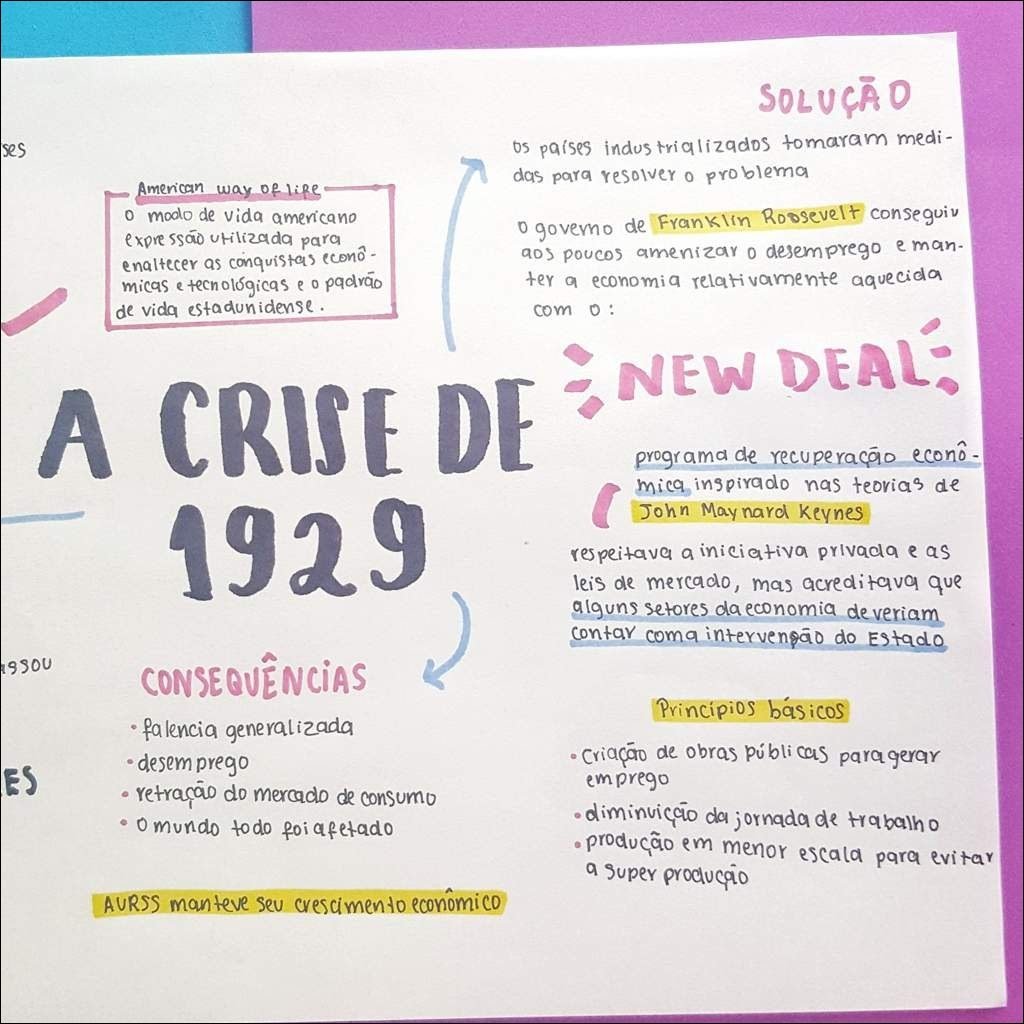 American way of life
O modo de vida americano
expressão utilizada para
enaltecer as conquistas econô-
micas e tecnológicas e o padrão
de vida estadunidense.
A CRISE DE
1929
CONSEQUÊNCIAS
• falencia generalizada
• desemprego
• retração do mercado de consumo
• o mundo todo foi afetado
A URSS manteve seu crescimento econômico
SOLUÇÃO
os países industrializados tomaram medi-
das para resolver o problema
o governo de Franklin Roosevelt conseguiu
aos poucos amenizar o desemprego e man-
ter a economia relativamente aquecida
com o:
NEW DEAL
programa de recuperação econô-
mica inspirado nas teorias de
John Maynard Keynes
respeitava a iniciativa privada e as
leis de mercado, mas acreditava que
alguns setores da economia deveriam
contar com a intervenção do Estado
Princípios básicos
• criação de obras públicas para gerar
emprego
• diminuição da jornada de trabalho
• produção em menor escala para evitar
a super produção